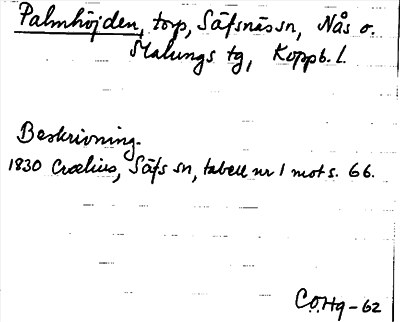 Palmhöjden, torp, Säfsnäs sn, Nås o.
Malungs tg, Koppb. l.
Beskrivning.
1830 Crælius, Säfs sn, tabell nr 1 mot s. 66.
C.O.Hg - 62